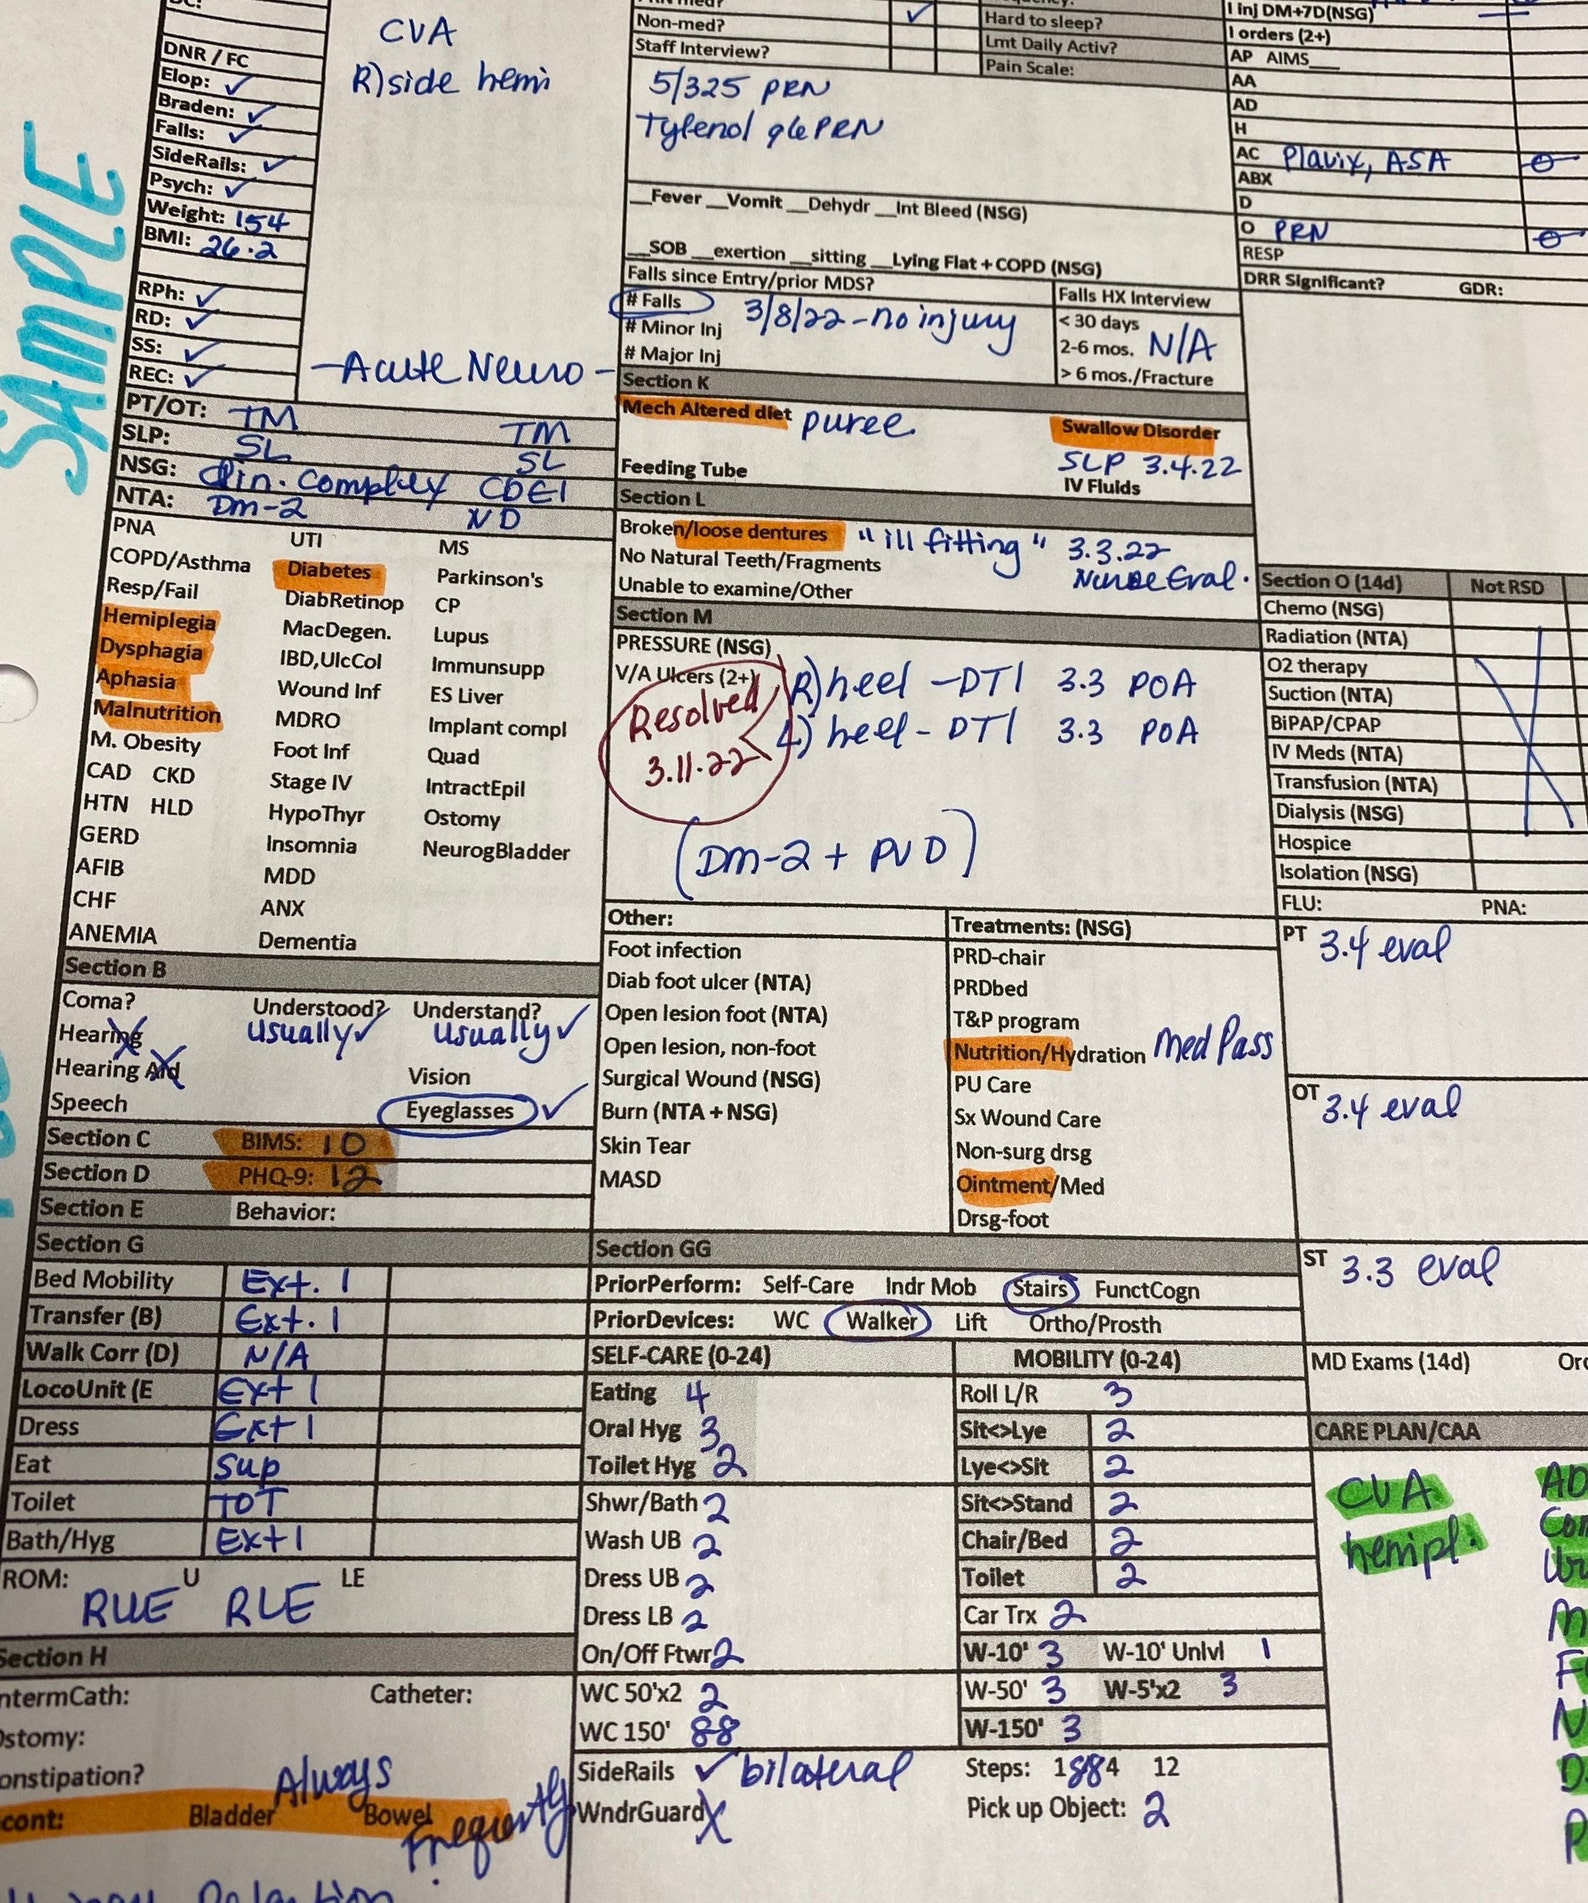 SAMPLE
DNR / FC
Elop: ✓
Braden: ✓
Falls: ✓
SideRails: ✓
Psych: ✓
Weight: 154
BMI: 26.2
RPh: ✓
RD: ✓
SS: ✓
REC: ✓
CVA
R) side hemi
-Acute Neuro-
PT/OT: TM TM
SLP: SL SL
NSG: Clin. Complex CDE1
NTA: Dm-2 ND
PNA UTI MS
COPD/Asthma Diabetes Parkinson's
Resp/Fail DiabRetinop CP
Hemiplegia MacDegen. Lupus
Dysphagia IBD,UlcCol Immunsupp
Aphasia Wound Inf ES Liver
Malnutrition MDRO Implant compl
M. Obesity Foot Inf Quad
CAD CKD Stage IV IntractEpil
HTN HLD HypoThyr Ostomy
GERD Insomnia NeurogBladder
AFIB MDD
CHF ANX
ANEMIA Dementia
Section B
Coma? Understood? Understand?
Hearing usually ✓ usually ✓
Hearing Aid Vision
Speech Eyeglasses ✓
Section C BIMS: 10
Section D PHQ-9: 12
Section E Behavior:
Section G
Bed Mobility Ext. 1
Transfer (B) Ext. 1
Walk Corr (D) N/A
LocoUnit (E Ext 1
Dress Ext 1
Eat Sup
Toilet TOT
Bath/Hyg Ext 1
ROM: U LE
RUE RLE
Section H
ntermCath: Catheter:
Ostomy:
onstipation?
Always
cont: Bladder Bowel Frequently
Non-med? ✓
Staff Interview?
Hard to sleep?
Lmt Daily Activ?
Pain Scale:
5/325 PRN
Tylenol q6 PRN
__Fever __Vomit __Dehydr __Int Bleed (NSG)
__SOB __exertion __sitting __Lying Flat + COPD (NSG)
Falls since Entry/prior MDS?
# Falls 3/8/22 - no injury
# Minor Inj
# Major Inj
Falls HX Interview
< 30 days
2-6 mos. N/A
> 6 mos./Fracture
Section K
Mech Altered diet puree Swallow Disorder
SLP 3.4.22
Feeding Tube IV Fluids
Section L
Broken/loose dentures "ill fitting" 3.3.22
No Natural Teeth/Fragments Nurse Eval.
Unable to examine/Other
Section M
PRESSURE (NSG)
V/A Ulcers (2+) R) heel - DTI 3.3 POA
L) heel - DTI 3.3 POA
Resolved
3.11.22
(Dm-2 + PVD)
Other: Treatments: (NSG)
Foot infection PRD-chair
Diab foot ulcer (NTA) PRDbed
Open lesion foot (NTA) T&P program
Open lesion, non-foot Nutrition/Hydration Med Pass
Surgical Wound (NSG) PU Care
Burn (NTA + NSG) Sx Wound Care
Skin Tear Non-surg drsg
MASD Ointment/Med
Drsg-foot
Section GG
PriorPerform: Self-Care Indr Mob Stairs FunctCogn
PriorDevices: WC Walker Lift Ortho/Prosth
SELF-CARE (0-24) MOBILITY (0-24)
Eating 4 Roll L/R 3
Oral Hyg 3 Sit<>Lye 2
Toilet Hyg 2 Lye<>Sit 2
Shwr/Bath 2 Sit<>Stand 2
Wash UB 2 Chair/Bed 2
Dress UB 2 Toilet 2
Dress LB 2 Car Trx 2
On/Off Ftwr 2 W-10' 3 W-10' Unlvl 1
WC 50'x2 2 W-50' 3 W-5'x2 3
WC 150' 88 W-150' 3
SideRails ✓ bilateral Steps: 1 88 4 12
WndrGuard X Pick up Object: 2
I inj DM+7D(NSG)
I orders (2+)
AP AIMS___
AA
AD
H
AC Plavix, ASA
ABX
D
O PRN
RESP
DRR Significant? GDR:
Section O (14d) Not RSD
Chemo (NSG)
Radiation (NTA)
O2 therapy
Suction (NTA)
BiPAP/CPAP
IV Meds (NTA)
Transfusion (NTA)
Dialysis (NSG)
Hospice
Isolation (NSG)
FLU: PNA:
PT 3.4 eval
OT 3.4 eval
ST 3.3 eval
MD Exams (14d)
CARE PLAN/CAA
CVA
hemipl.